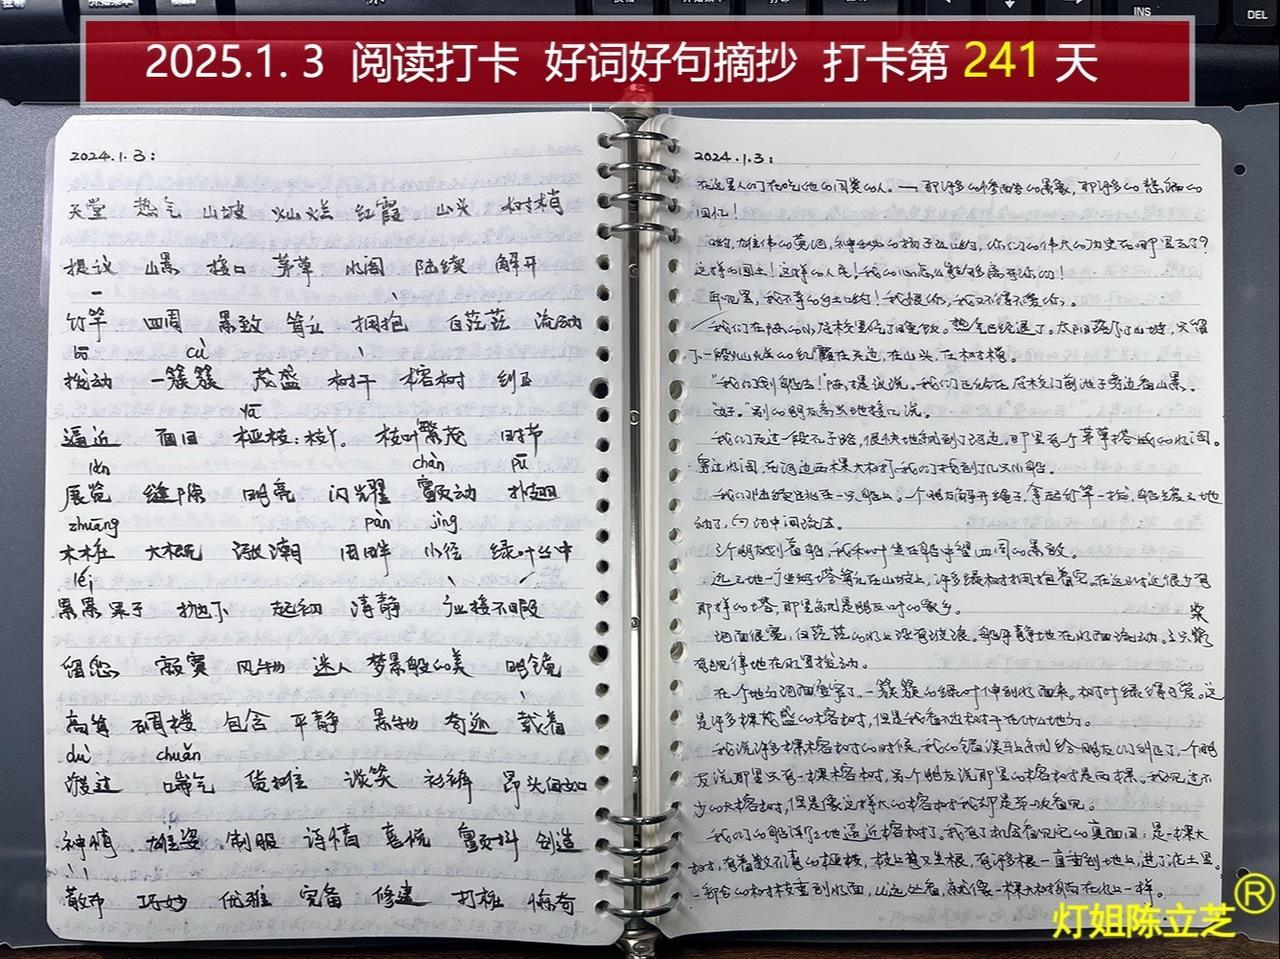 INS
DEL
2025.1. 3 阅读打卡 好词好句摘抄 打卡第 241 天
2024.1.3:
天堂 热气 山坡 灿烂 红霞 山头 树梢
提议 山景 接口 茅草 水阁 陆续 解开
竹竿 四周 景致 耸立 拥抱 白茫茫 流动
cù
拨动 一簇簇 茂盛 树干 榕树 纠正
yā
逼近 面目 桠枝:枝丫。 枝叶繁茂 时节
lǎn chàn pū
展览 缝隙 明亮 闪耀 颤动 扑翅
zhuāng pàn jìng
木桩 大概 涨潮 田畔 小径 绿叶丛中
léi
累累果子 抛下 起初 清静 应接不暇
留恋 寂寞 风物 迷人 梦景般的美 明镜
高耸 碉楼 包含 平静 景物 奇迹 载着
dù chuǎn
渡过 喘气 货摊 谈笑 衫裤 昂头阔步
神情 雄姿 制服 诗情 喜悦 颤抖 创造
散布 巧妙 优雅 完备 修建 打桩 惊奇
2024.1.3:
回忆!
哟,雄伟的黄河,神秘的扬子江哟,你们的伟大的历史在哪里去了?
这样的国土!这样的人民!我的心怎么能够离开你们!
再见罢,我不幸的乡土哟!我恨你,我又不得不爱你。
我们在陈的小学校里吃了晚饭。热气已经退了。太阳落下了山坡,只留
下一段灿烂的红霞在天边,在山头,在树梢。
“我们划船去!”陈提议说。我们正站在学校门前池子旁边看山景。
“好。”别的朋友高兴地接口说。
我们走过一段石子路,很快地就到了河边。那里有个茅草搭成的水阁。
穿过水阁,在河边两棵大树下我们找到了几只小船。
我们陆续跳在一只船上。一个朋友解开绳子,拿起竹竿一拨,船缓缓地
动了,向河中间流去。
三个朋友划着船,我和叶坐在船中望四周的景致。
远远地一座塔耸立在山坡上,许多绿树拥抱着它。在这附近很少有
那样的塔,那里就是朋友叶的家乡。
河面很宽,白茫茫的水上没有波浪。船平静地在水面流动。三只桨
有规律地在水里拨动。
在一个地方河面窄了。一簇簇的绿叶伸到水面来。树叶绿得可爱。这
是许多棵茂盛的榕树,但是我看不出树干在什么地方。
我说许多棵榕树的时候,我的错误马上就给朋友们纠正了,一个朋
友说那里只有一棵榕树,另一个朋友说那里的榕树是两棵。我见过不
少的大榕树,但是像这样大的榕树我却是第一次看见。
我们的船渐渐地逼近榕树了。我有了机会看见它的真面目:是一棵大
树,有着数不清的桠枝,枝上又生根,有许多根一直垂到地上,进了泥土里。
一部分的树枝垂到水面,从远处看,就像一棵大树躺在水上一样。
灯姐陈立芝®